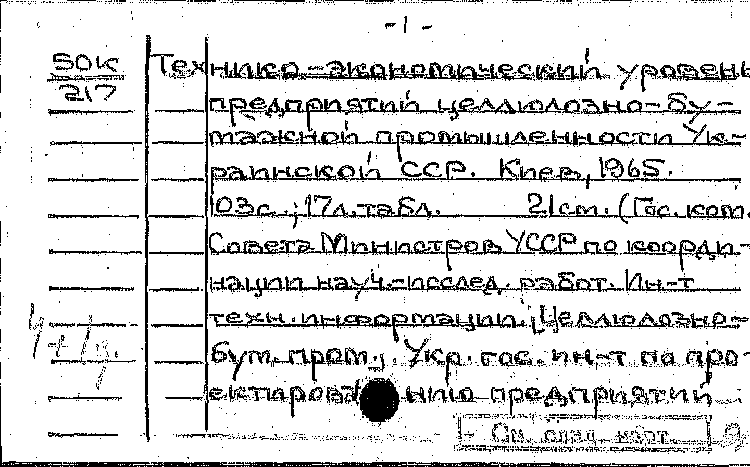 -1-
50К
217
Технико-экономический уровень
предприятий целлюлозно-бу-
мажной промышленности Ук-
раинской ССР. Киев, 1965.
103с.; 17л.табл. 21cm. (Гос. ком.
Совета Министров УССР по коорди-
нации науч.-исслед. работ. Ин-т
техн. информации. Целлюлозно-
бум. пром.; Укр. гос. ин-т по про-
ектированию предприятий
См. след. карт.